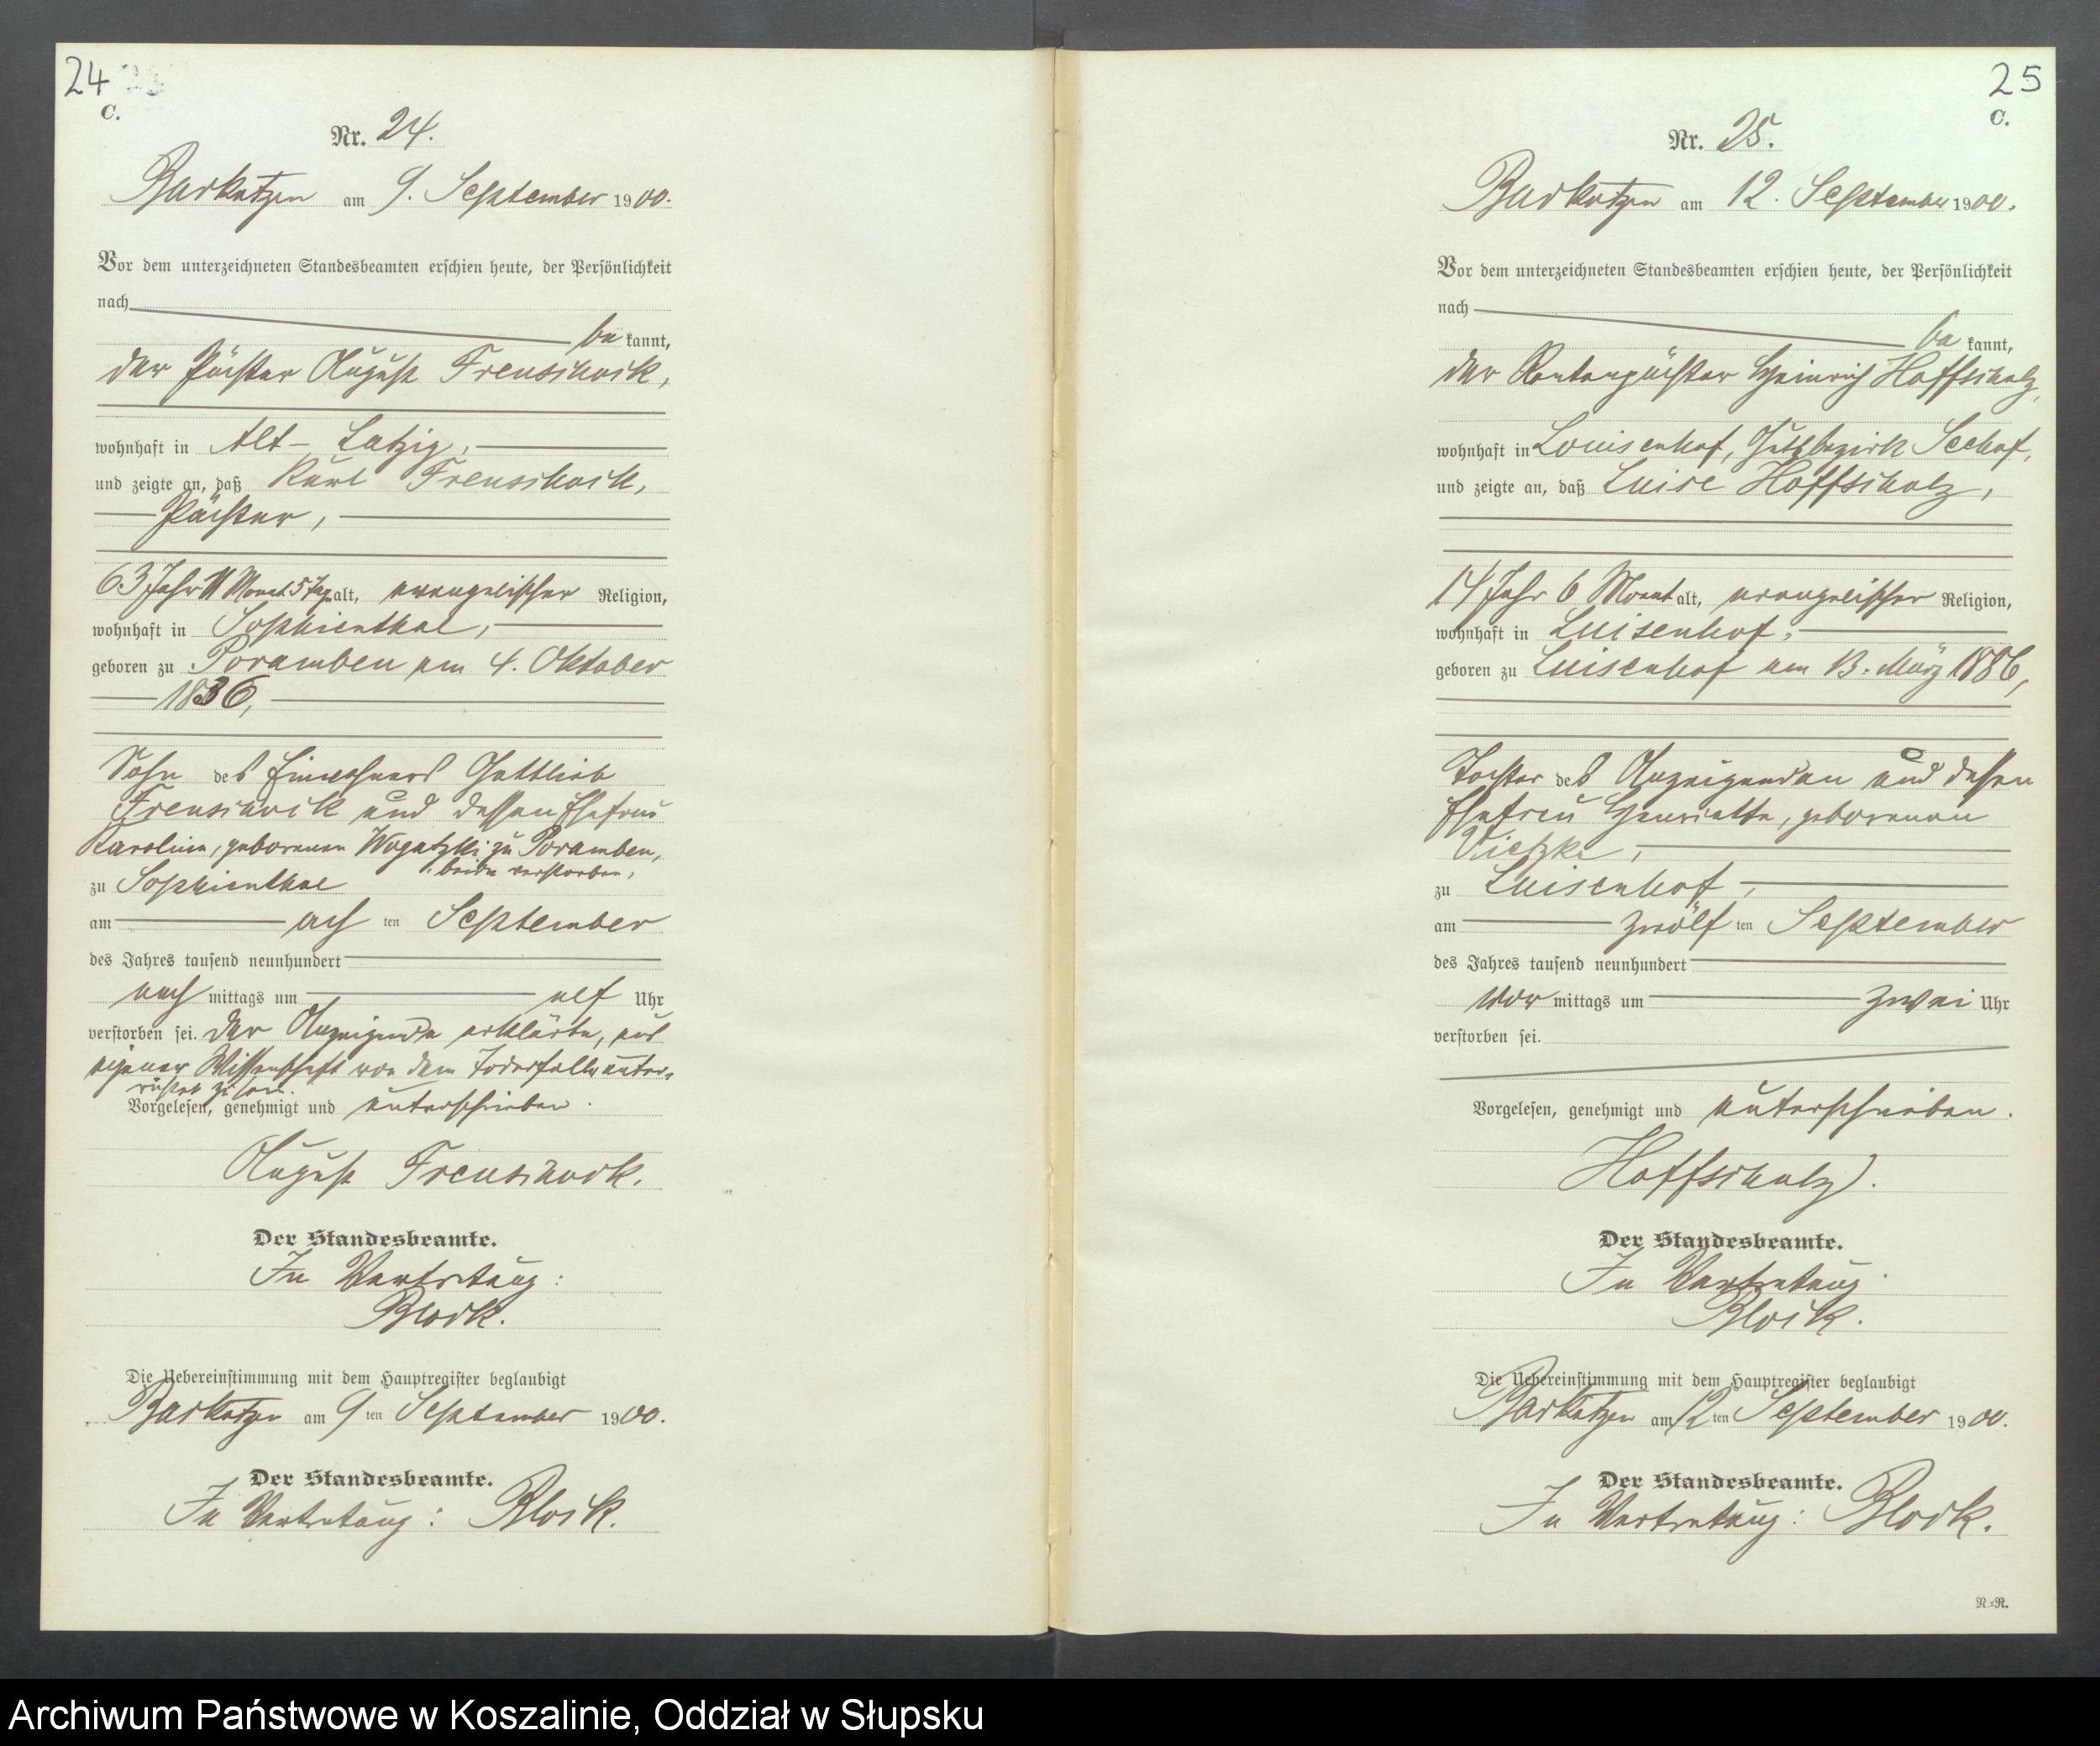 24
C.
Nr. 24.
Barkotzen am 9. September 1900.
Vor dem unterzeichneten Standesbeamten erschien heute, der Persönlichkeit
nach
be kannt,
der Pächter August Freuschock,
wohnhaft in Alt-Lutzig,
und zeigte an, daß Karl Freuschock,
Pächter,
63 Jahr 11 Monat 5 Tag alt, evangelischer Religion,
wohnhaft in Sophienthal,
geboren zu Poramben am 4. Oktober
1836,
Sohn des Einwohners Gottlieb
Freuschock und dessen Ehefrau
Karoline, geborenen Wogatzki zu Poramben,
beide verstorben,
zu Sophienthal
am ach ten September
des Jahres tausend neunhundert
nach mittags um elf Uhr
verstorben sei. Der Anzeigende erklärte, aus
eigener Wissenschaft von dem Todesfalle unter-
richtet zu sein.
Vorgelesen, genehmigt und unterschrieben.
August Freuschock.
Der Standesbeamte.
In Vertretung:
Block.
Die Uebereinstimmung mit dem Hauptregister beglaubigt
Barkotzen am 9 ten September 1900.
Der Standesbeamte.
In Vertretung: Block.
25
C.
Nr. 25.
Barkotzen am 12. September 1900.
Vor dem unterzeichneten Standesbeamten erschien heute, der Persönlichkeit
nach
be kannt,
der Rentenpächter Heinrich Hoffscholz,
wohnhaft in Louisenhof, Gutsbezirk Seehof,
und zeigte an, daß Luise Hoffscholz,
14 Jahr 6 Monat alt, evangelischer Religion,
wohnhaft in Luisenhof,
geboren zu Luisenhof am 13. März 1886,
Tochter des Anzeigenden und dessen
Ehefrau Henriette, geborenen
Vietzke,
zu Luisenhof,
am zwölf ten September
des Jahres tausend neunhundert
vor mittags um zwei Uhr
verstorben sei.
Vorgelesen, genehmigt und unterschrieben.
Hoffscholz.
Der Standesbeamte.
In Vertretung:
Block.
Die Uebereinstimmung mit dem Hauptregister beglaubigt
Barkotzen am 12 ten September 1900.
Der Standesbeamte.
In Vertretung: Block.
N.=R.
Archiwum Państwowe w Koszalinie, Oddział w Słupsku